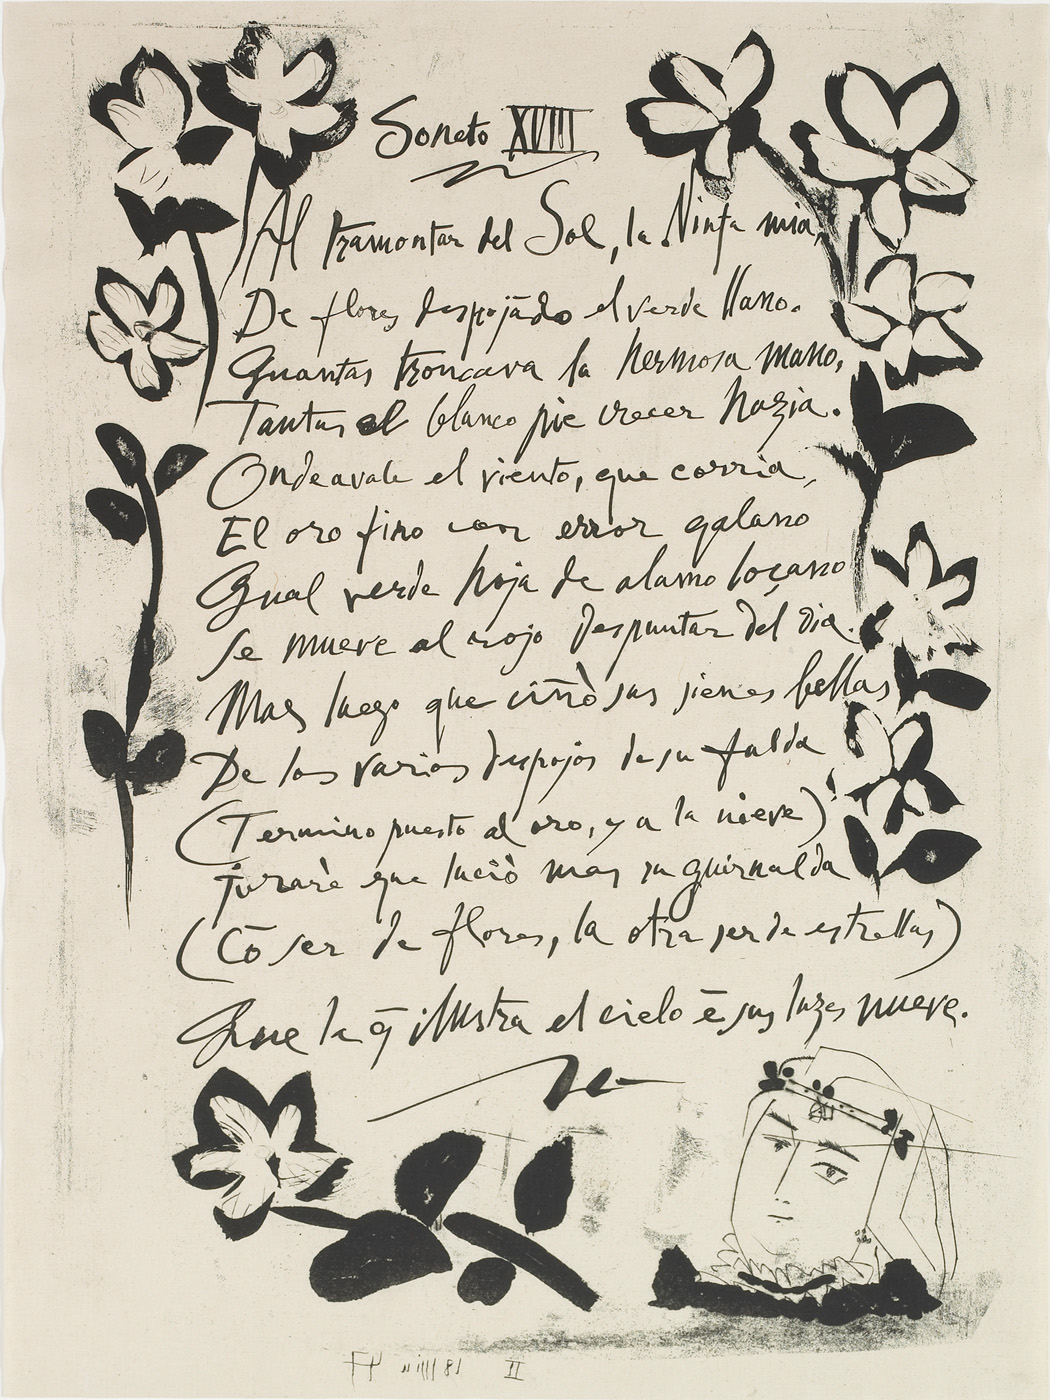 Soneto XVIII
Al tramontar del Sol, la Ninfa mia,
De flores despojãdo el verde llano.
Quantas troncava la hermosa mano,
Tantas el blanco pie crecer hazia.
Ondeavale el viento, que corria,
El oro fino con error galano
Qual verde hoja de alamo loçano
Se mueve al rojo despuntar del dia.
Mas luego que ciñò sus sienes bellas
De los varios despojos de su falda
(Termino puesto al oro, y a la nieve)
jurarè que luciò mas su guirnalda
(Cō ser de flores, la otra ser de estrellas)
Que la q̄ illustra el cielo ē sus luzes nueve.
II 18